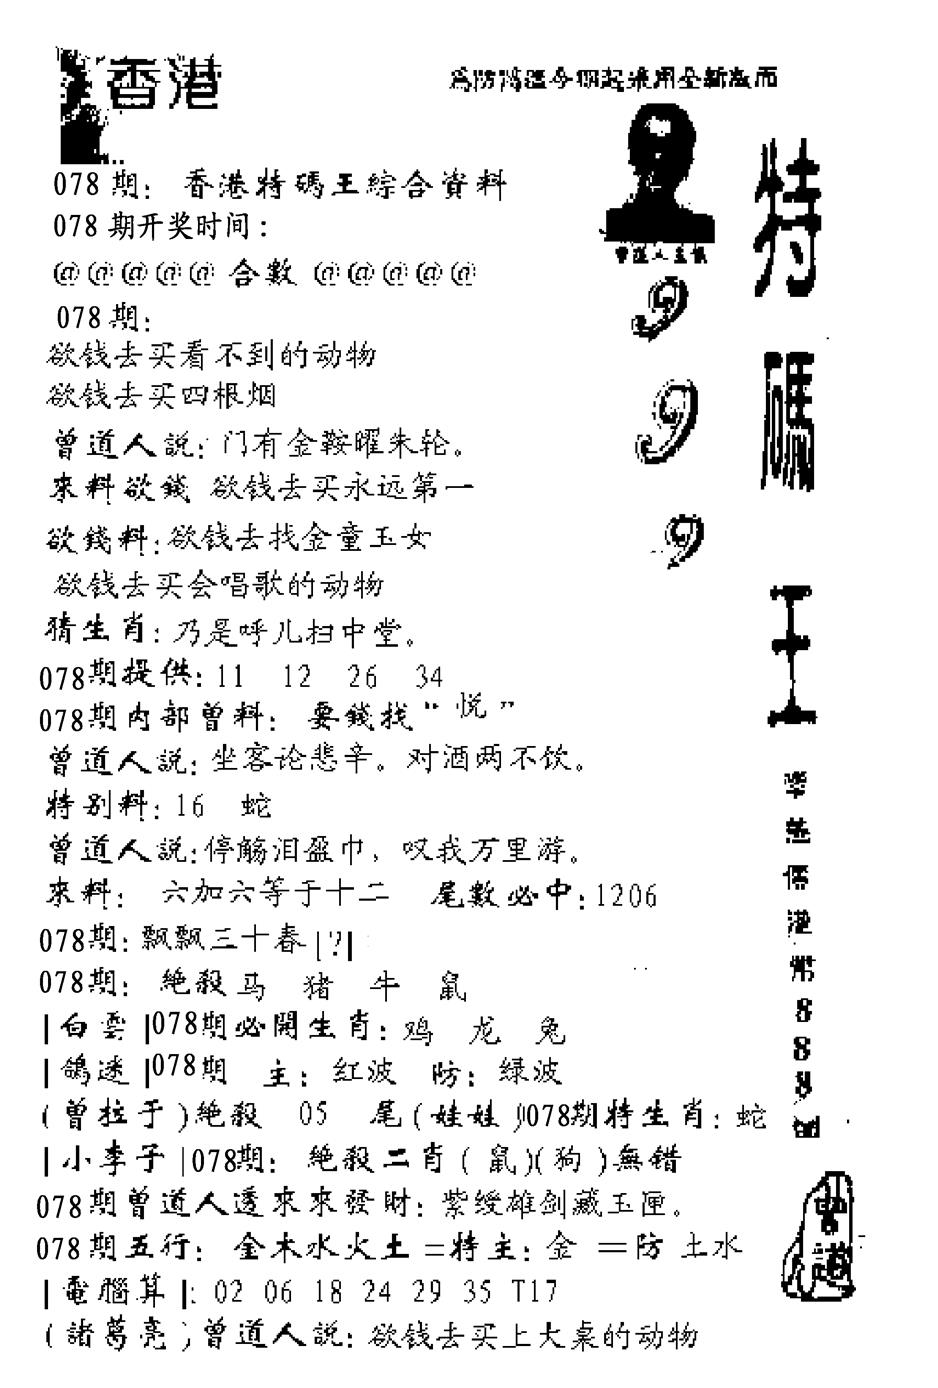 香港
為防混今期起采用全新版面
078 期： 香港特碼王綜合資料
078 期开奖时间：
@@@@@ 合數 @@@@@
078 期：
欲钱去买看不到的动物
欲钱去买四根烟
曾道人說：门有金鞍曜朱轮。
來料欲錢 欲钱去买永远第一
欲錢料：欲钱去找金童玉女
欲钱去买会唱歌的动物
猜生肖：乃是呼儿扫中堂。
078期提供：11 12 26 34
078期内部曾料： 要錢找“悦”
曾道人說：坐客论悲辛。对酒两不饮。
特别料：16 蛇
曾道人說：停觞泪盈巾，叹我万里游。
來料： 六加六等于十二 尾數必中：1206
078期：飘飘三十春|?|
078期： 絶殺马 猪 牛 鼠
|白雲|078期必開生肖：鸡 龙 兔
|鴿迷|078期 主：红波 防：绿波
(曾拉于)絶殺 05 尾(娃娃)078期特生肖：蛇
|小李子|078期： 絶殺二肖(鼠)(狗)無错
078期曾道人透來來發財：紫绶雄剑藏玉匣。
078期五行： 金木水火土=特主：金 =防 土水
|電腦算|：02 06 18 24 29 35 T17
(諸葛亮)曾道人說：欲钱去买上大桌的动物
曾道人主儀
9
9
9
特
碼
王
港
幣
8
8
8
曾道